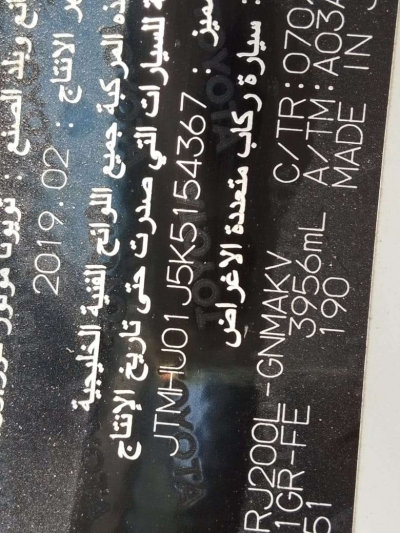 وبلد الصنع : تويوتا موتور
الانتاج : 2019.02
المركبة جميع اللوائح الفنية الخليجية
للسيارات التي صدرت حتى تاريخ الإنتاج
ميز : JTMHU01J5K5154367
: سيارة ركاب متعددة الاغراض
RJ200L-GNMAKV C/TR:070
1GR-FE 3956mL A/TM:A03A
51 190 MADE IN